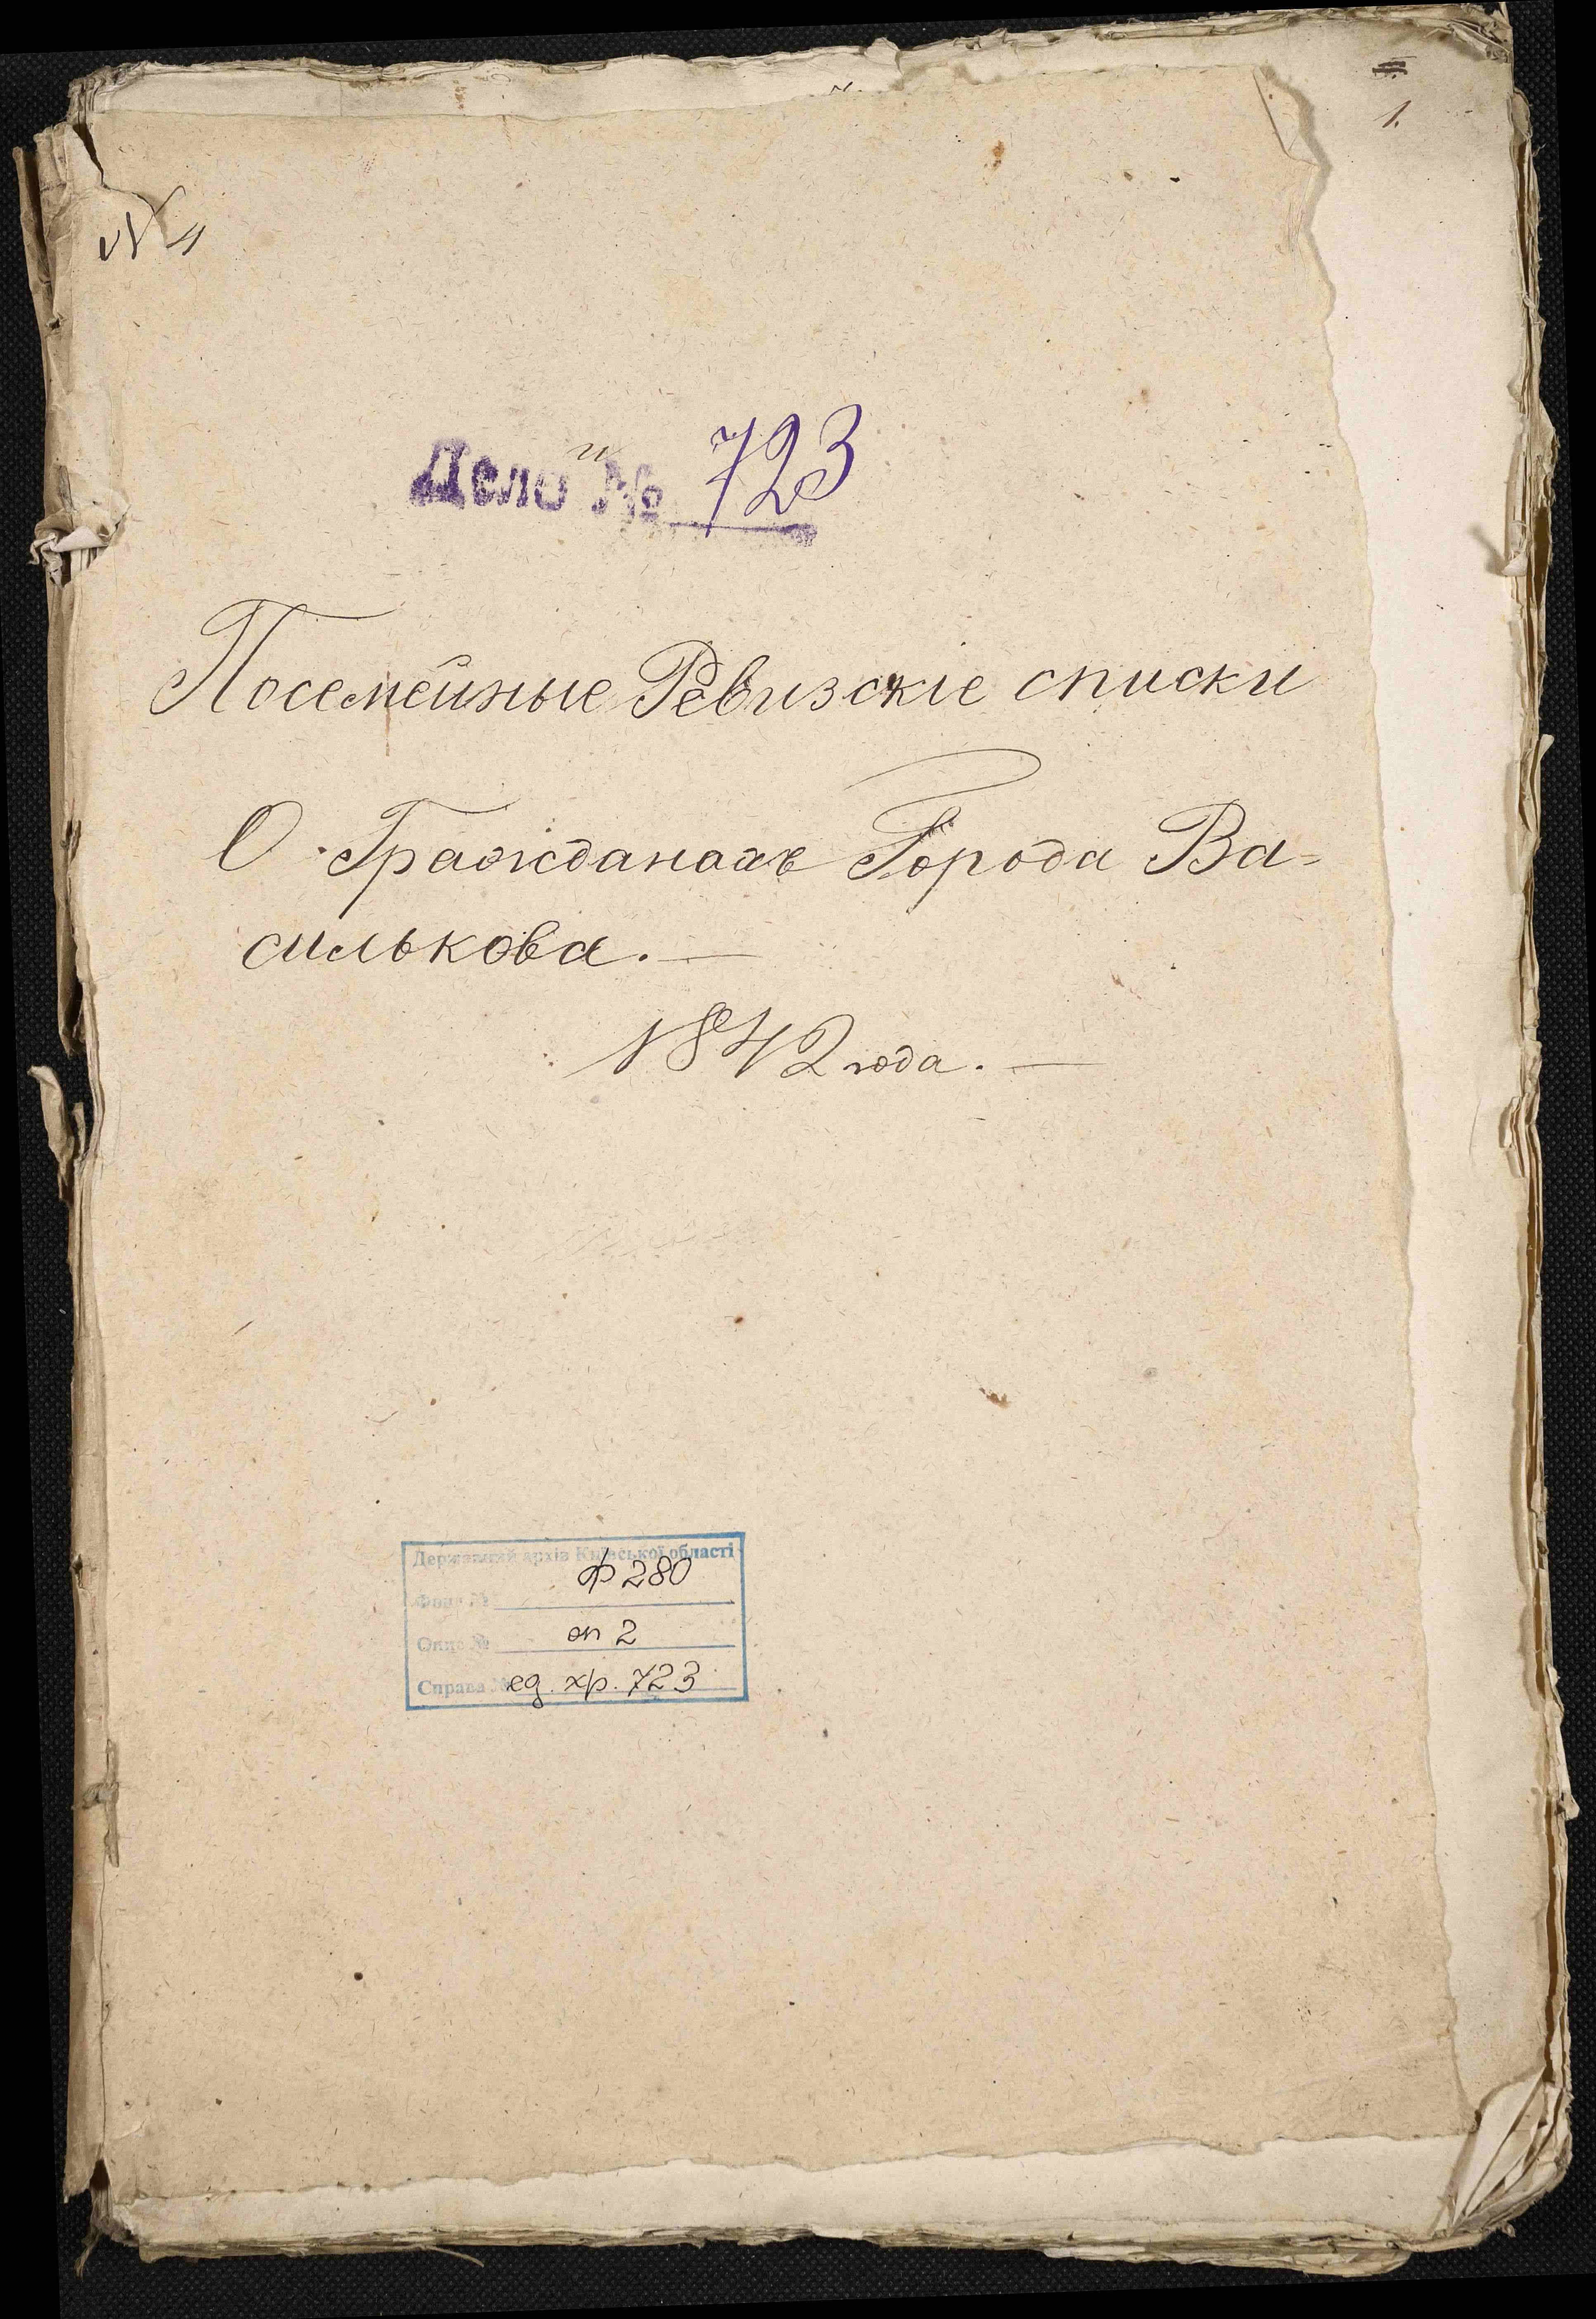 1.
№ 4
Дело № 723
Посемейные Ревизскіе списки
О Гражданахъ Города Ва=
силькова.—
1842 года.—
Державний архів Київської області
ф 280
Фонд №
Опис № оп 2
Справа № ед. хр. 723